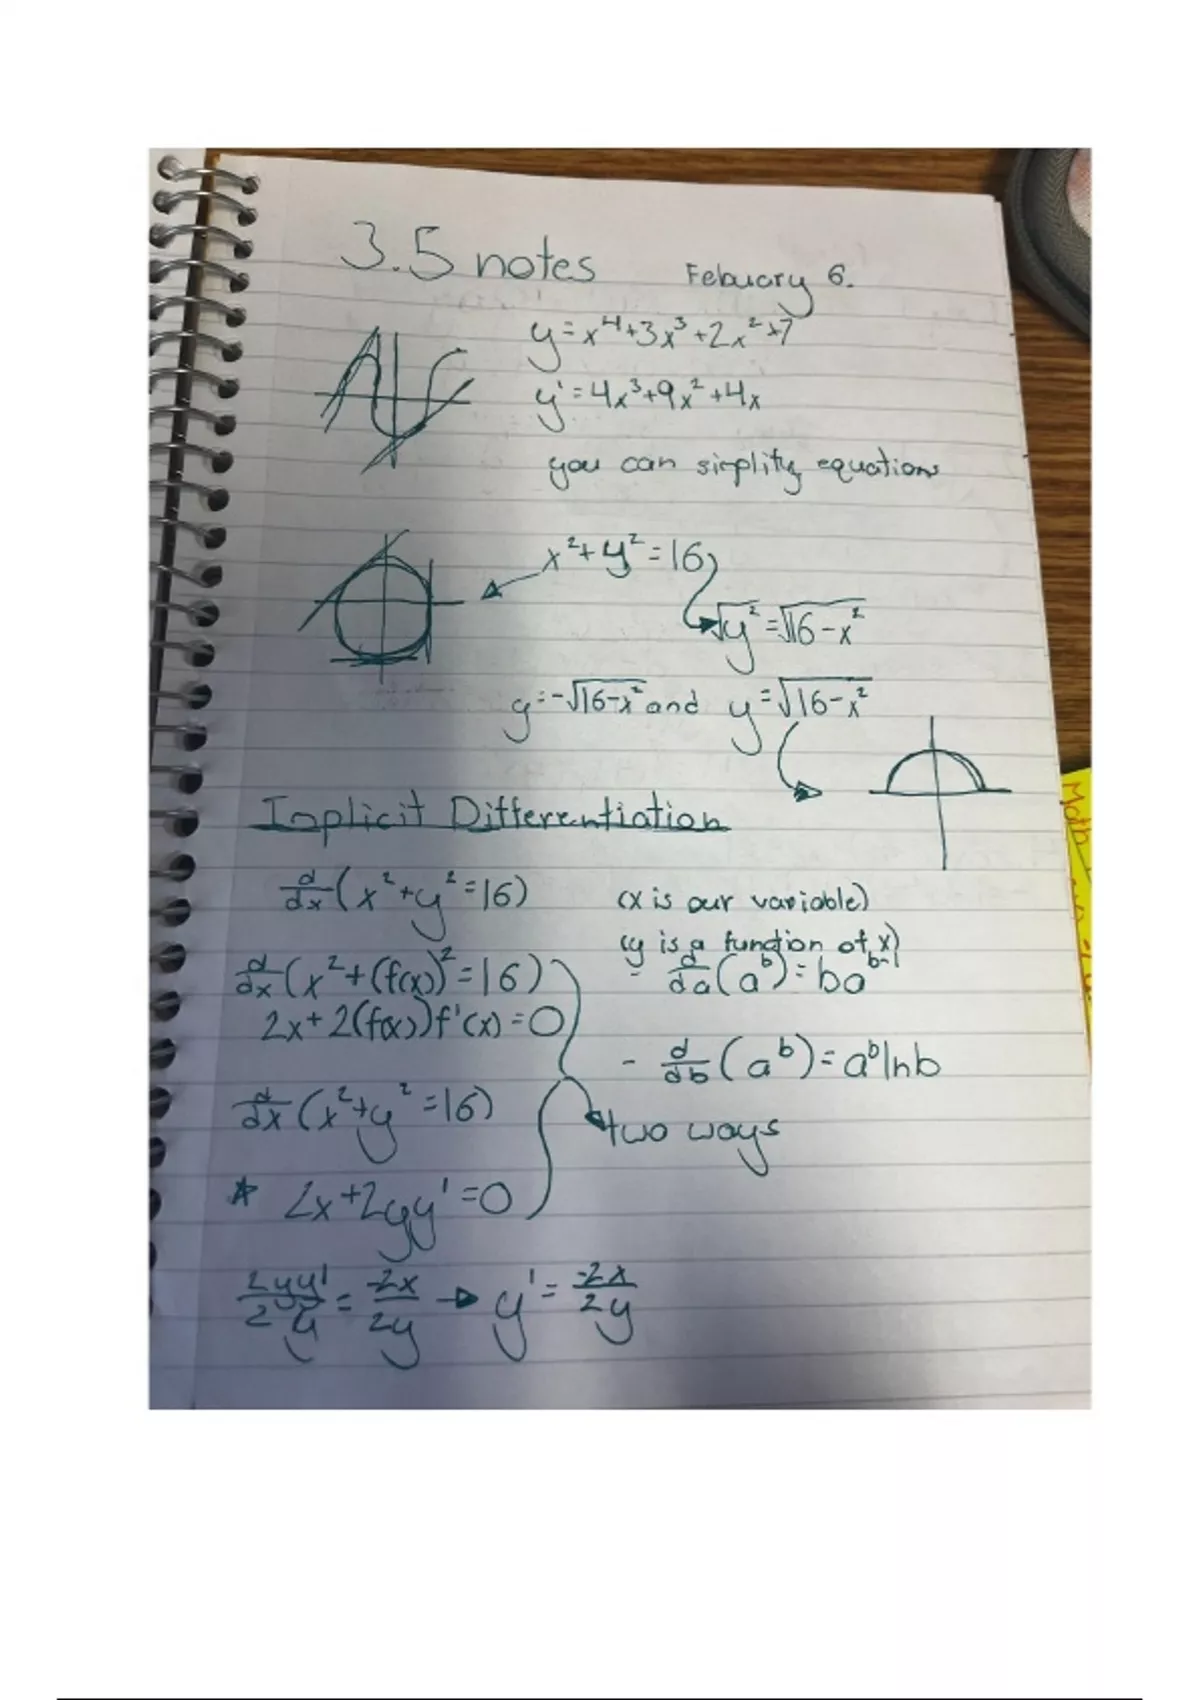 3.5 notes Febuary 6.
y = x⁴+3x³+2x²+7
y' = 4x³+9x²+4x
you can simplify equations
x²+y²=16
√y² = √16-x²
y=-√16-x² and y=√16-x²
Implicit Differentiation
d/dx (x²+y²=16) (x is our variable)
(y is a function of x)
d/dx (x²+(f(x))²=16) - d/da (a^b) = ba^b-1
2x+2(f(x))f'(x)=0
- d/db (a^b) = a^b ln b
d/dx (x²+y²=16) two ways
* 2x+2yy'=0
2yy'/2y = -2x/2y → y' = -2x/2y
Math